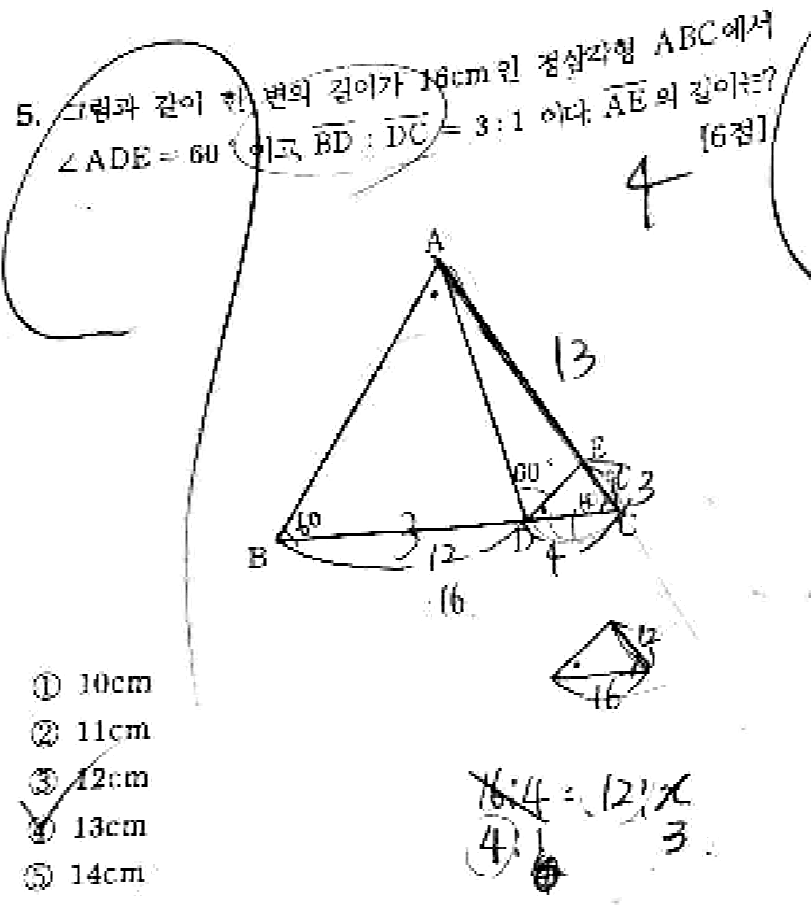 5. 그림과 같이 한 변의 길이가 16cm인 정삼각형 ABC에서
∠ADE = 60° 이고 BD : DC = 3 : 1 이다. AE의 길이는?
[6점]
4
A
13
60°
E
3
60
B
D
C
12
4
16
12
16
① 10cm
② 11cm
③ 12cm
④ 13cm
⑤ 14cm
16:4 = 12:x
4:1
3